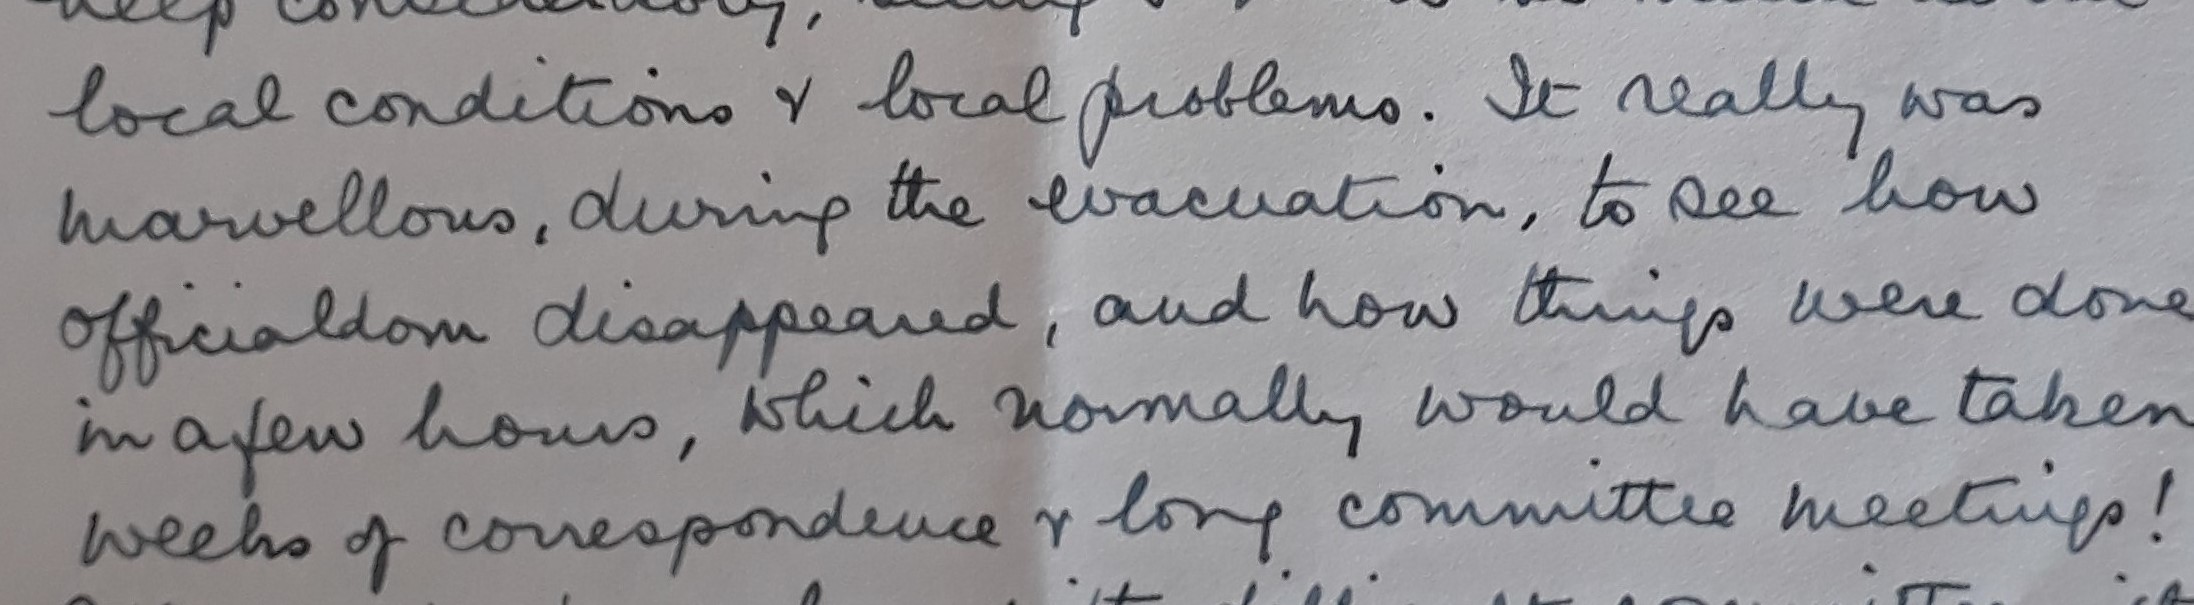 local conditions & local problems. It really was
marvellous, during the evacuation, to see how
officialdom disappeared, and how things were done
in a few hours, which normally would have taken
weeks of correspondence & long committee meetings!